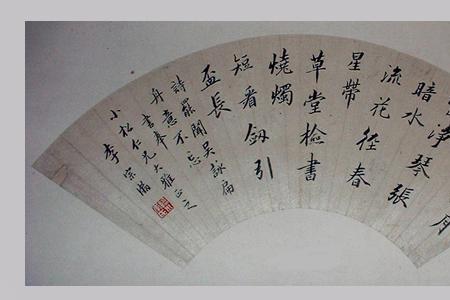 月
淨琴張
暗水
流花徑春
星帶
草堂檢書
燒燭
短看劔引
盃長
詩罷聞吳詠扁
舟意不忘
書奉
小松仁兄大雅正之
李宗瀚